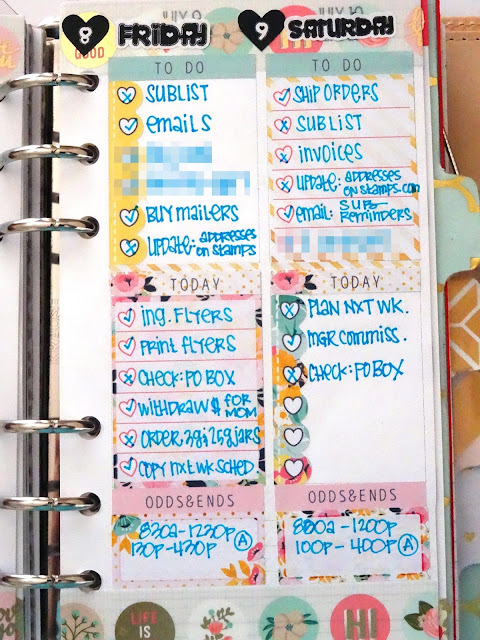 8 FRIDAY
GOOD
TO DO
SUBLIST
emails
BUY MAILERS
UPDATE: ADDRESSES
ON STAMPS
TODAY
ing. FLYERS
PRINT FLYERS
CHECK: PO BOX
WITHDRAW $ FOR
MOM
ORDER: 3g; 25g JARS
COPY NXT WK SCHED.
ODDS&ENDS
830a-1230p
130p-430p A
9 SATURDAY
HI
TO DO
SHIP ORDERS
SUBLIST
INVOICES
UPDATE: ADDRESSES
ON STAMPS.COM
EMAIL: SUB-
REMINDERS
TODAY
PLAN NXT WK.
MGR COMMISS.
CHECK: PO BOX
ODDS&ENDS
830a-1200p
100p-400p A
LIFE
IS
HI